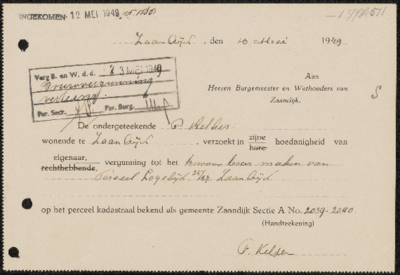 INGEKOMEN: 12 MEI 1949
Zaandijk, den 10 Mei 1949
Aan
Heeren Burgemeester en Wethouders van
Zaandijk.
S
Verg B. en W. d.d. 23 MEI 1949
Bouwvergunning
verleend.
Par. Secr. Par. Burg.
De ondergeteekende P. Kelder
wonende te Zaandijk, verzoekt in zijne
hare hoedanigheid van
eigenaar,
rechthebbende, vergunning tot het bewoonbaar maken van
Perceel Lagedijk Zaandijk
op het perceel kadastraal bekend als gemeente Zaandijk Sectie A No. 2039-2040
(Handteekening)
P. Kelder